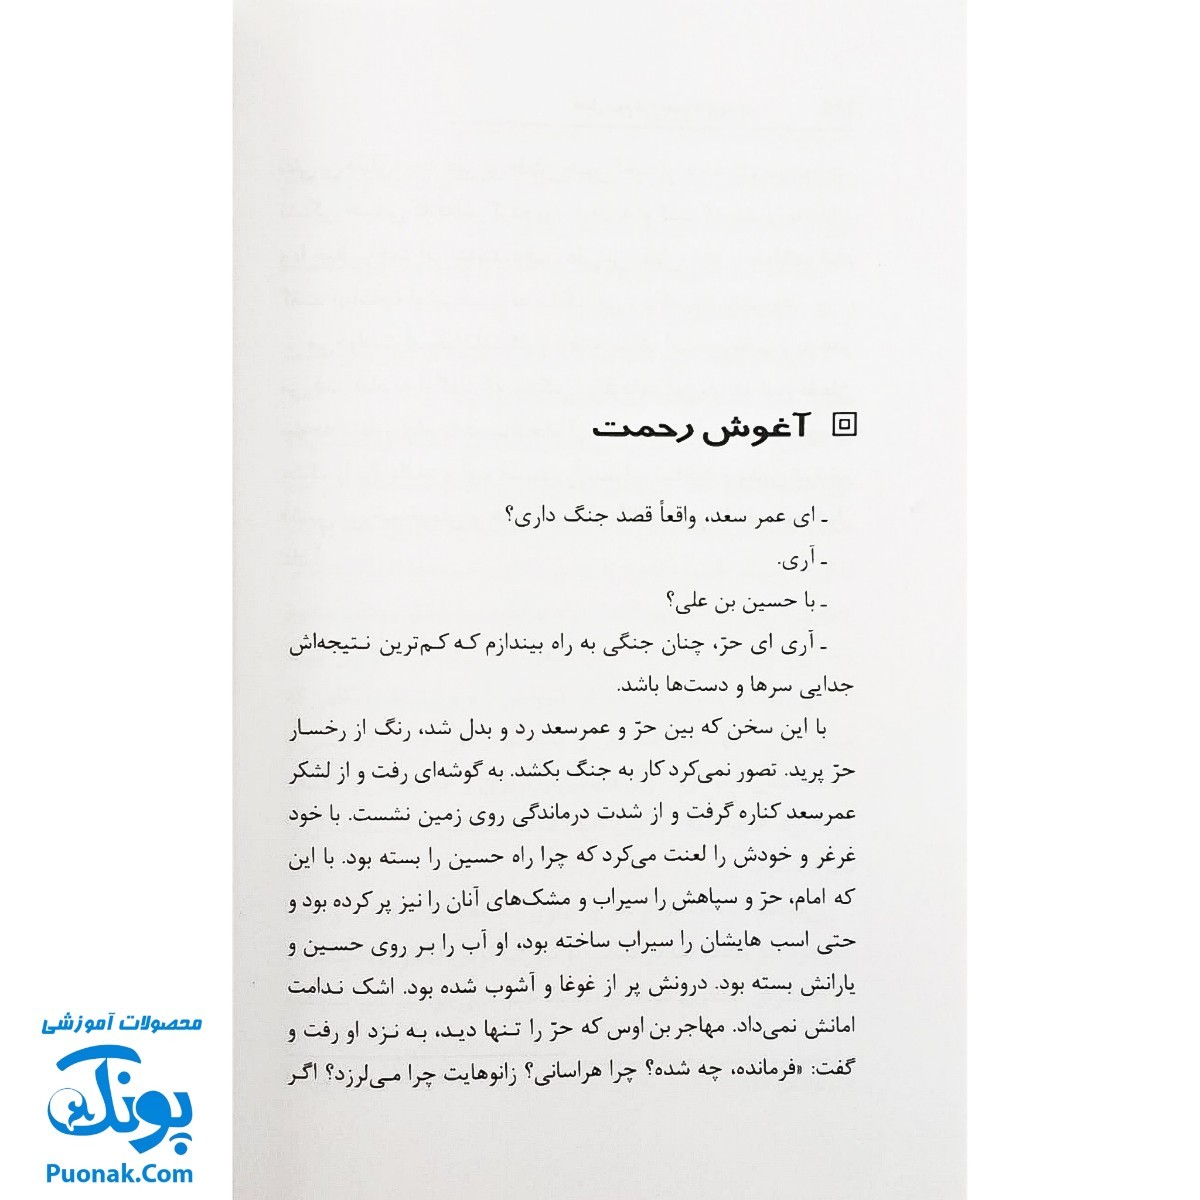 آغوش رحمت
ـ ای عمر سعد، واقعاً قصد جنگ داری؟
ـ آری.
ـ با حسین بن علی؟
ـ آری ای حرّ، چنان جنگی به راه بیندازم که کم‌ترین نتیجه‌اش
جدایی سرها و دست‌ها باشد.
با این سخن که بین حرّ و عمرسعد رد و بدل شد، رنگ از رخسار
حرّ پرید. تصور نمی‌کرد کار به جنگ بکشد. به گوشه‌ای رفت و از لشکر
عمرسعد کناره گرفت و از شدت درماندگی روی زمین نشست. با خود
غرغر و خودش را لعنت می‌کرد که چرا راه حسین را بسته بود. با این
که امام، حرّ و سپاهش را سیراب و مشک‌های آنان را نیز پر کرده بود و
حتی اسب هایشان را سیراب ساخته بود، او آب را بر روی حسین و
یارانش بسته بود. درونش پر از غوغا و آشوب شده بود. اشک ندامت
امانش نمی‌داد. مهاجر بن اوس که حرّ را تنها دید، به نزد او رفت و
گفت: «فرمانده، چه شده؟ چرا هراسانی؟ زانوهایت چرا می‌لرزد؟ اگر
محصولات آموزشی
پونک
Puonak.Com